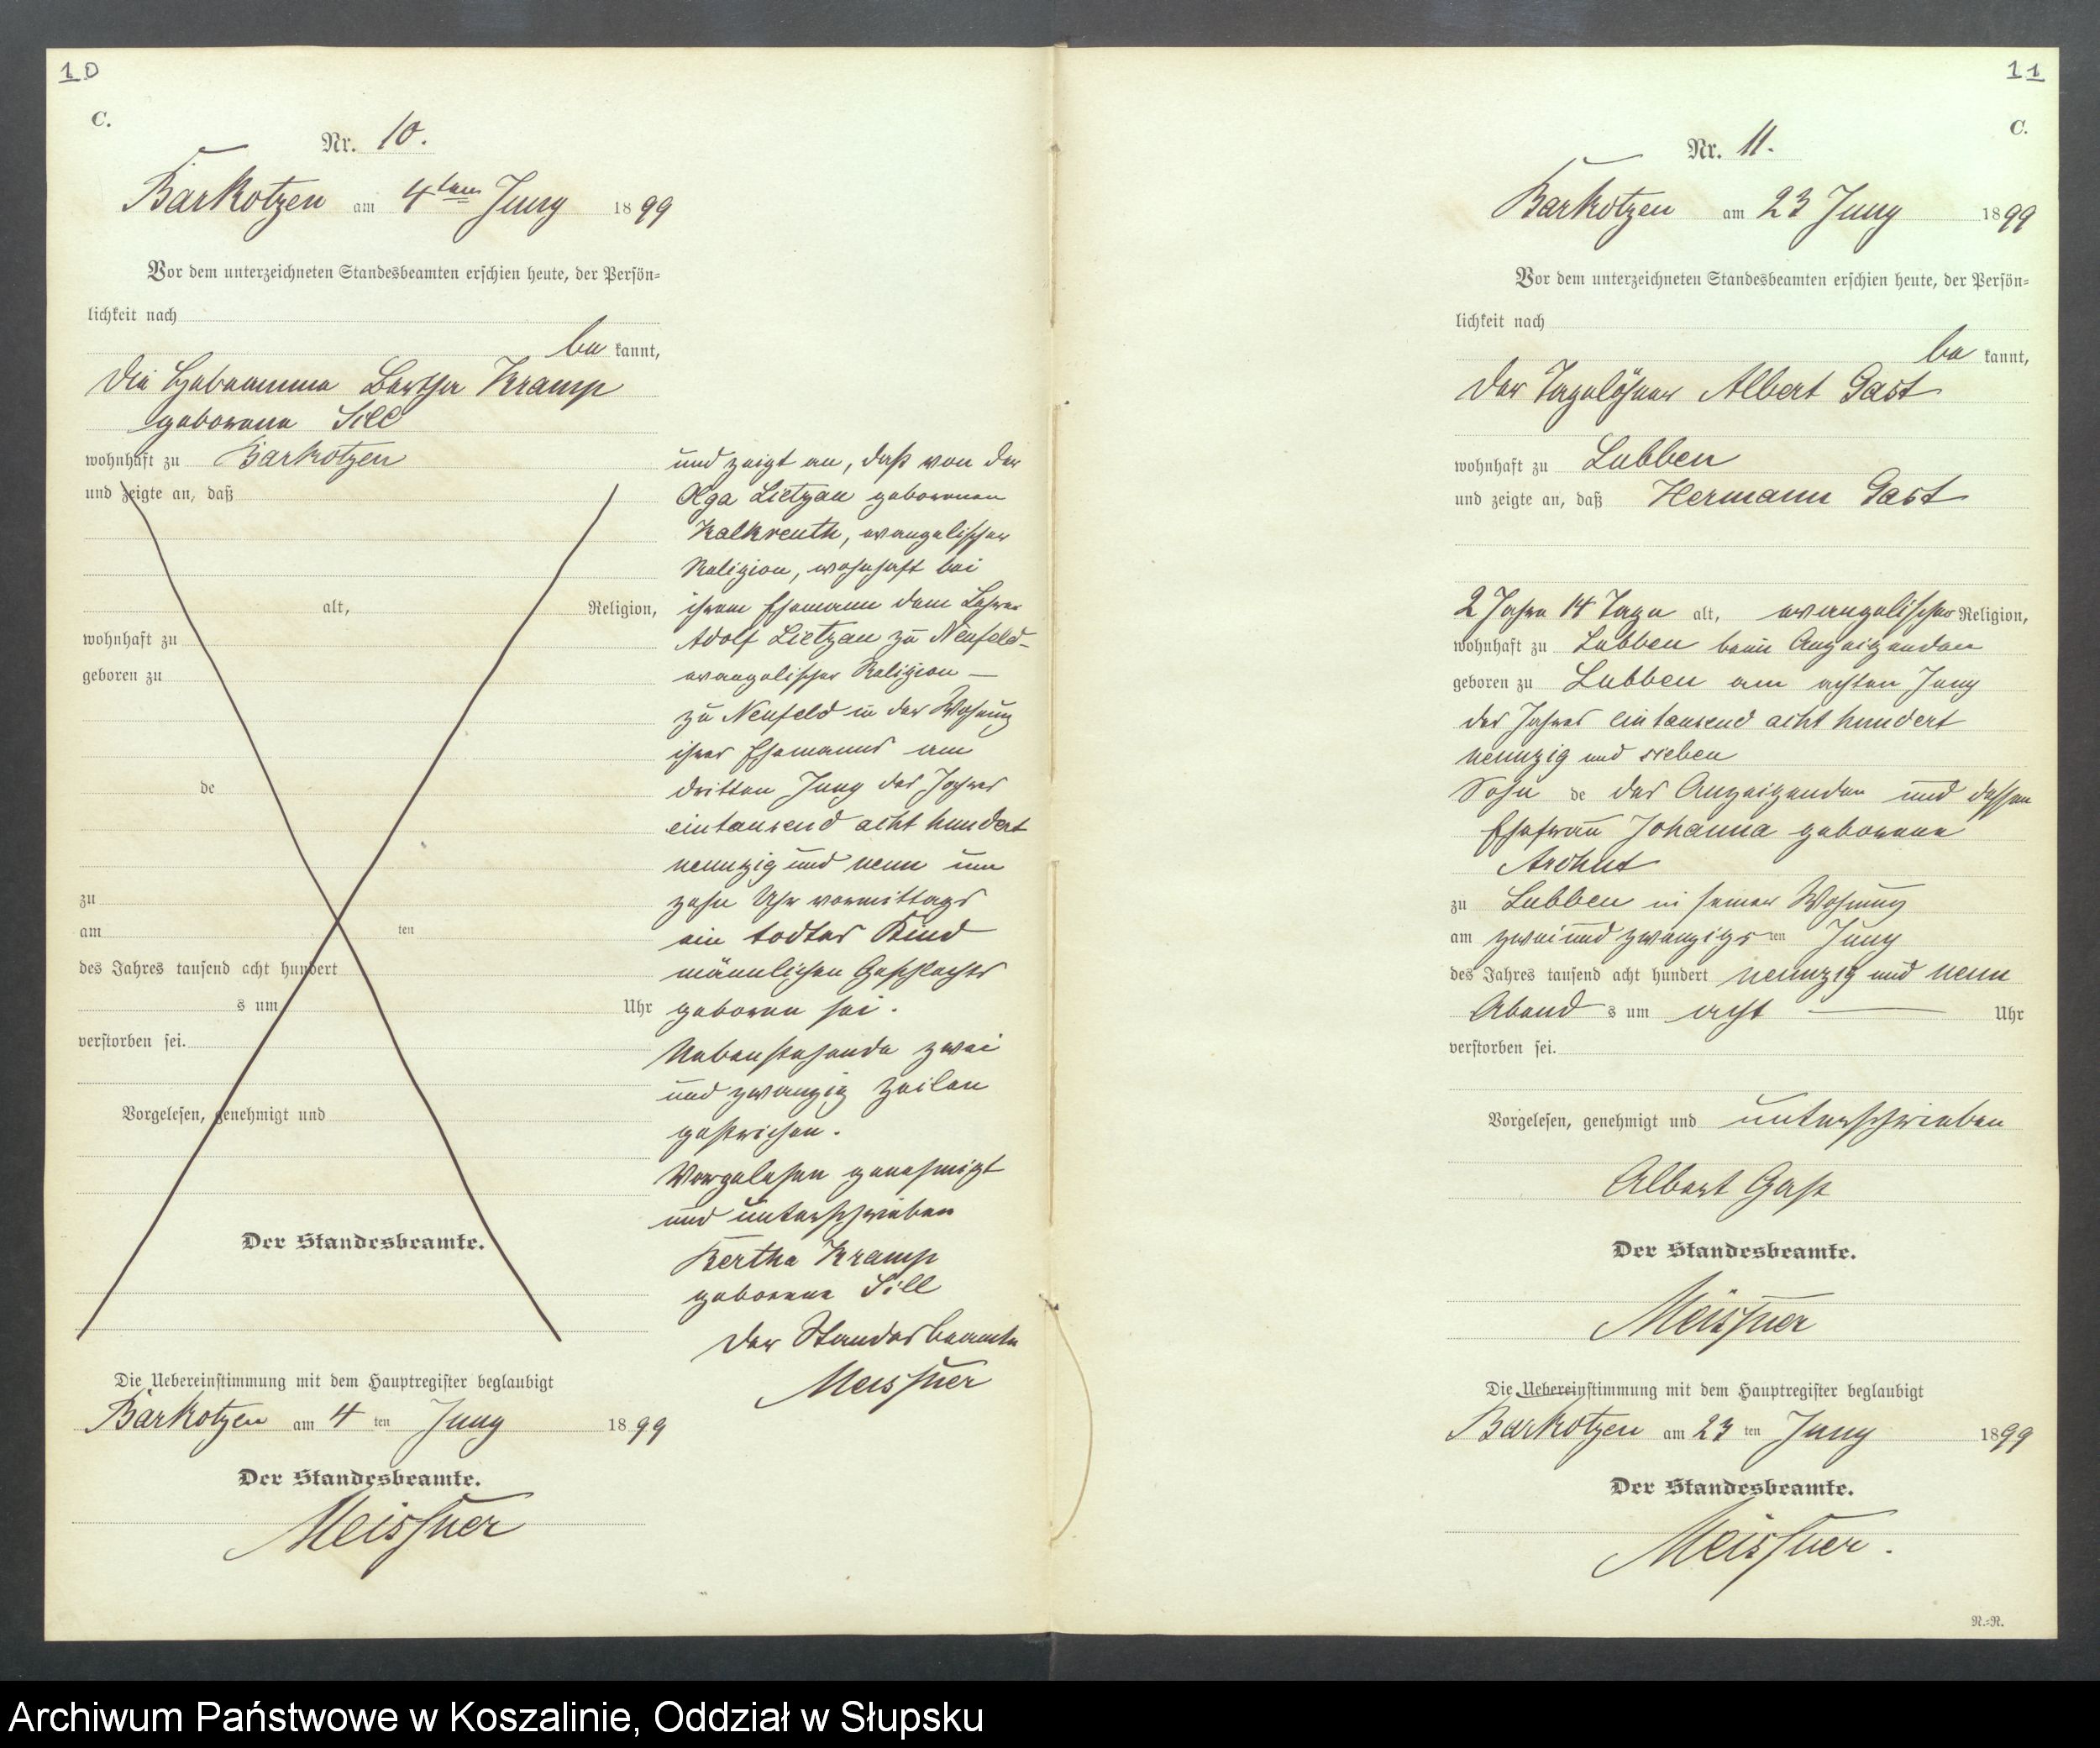 10
C.
Nr. 10.
Barkotzen am 4ten Juny 1899
Vor dem unterzeichneten Standesbeamten erschien heute, der Persön=
lichkeit nach
be kannt,
die Hebeamme Bertha Kramp
geborene Sill
wohnhaft zu Barkotzen
und zeigte an, daß
alt, Religion,
wohnhaft zu
geboren zu
de
zu
am ten
des Jahres tausend acht hundert
s um Uhr
verstorben sei.
Vorgelesen, genehmigt und
Der Standesbeamte.
und zeigt an, daß von der
Olga Lietzau geborenen
Kalkreuth, evangelischer
Religion, wohnhaft bei
ihrem Ehemanne dem Lehrer
Adolf Lietzau zu Neufeld –
evangelischer Religion —
zu Neufeld in der Wohnung
ihres Ehemannes am
dritten Juny des Jahres
eintausend acht hundert
neunzig und neun um
zehn Uhr vormittags
ein todtes Kind
männlichen Geschlechts
geboren sei.
Nebenstehende zwei
und zwanzig Zeilen
gestrichen.
Vorgelesen genehmigt
und unterschrieben
Bertha Kramp
geborene Sill
Der Standesbeamte
Meissner
Die Uebereinstimmung mit dem Hauptregister beglaubigt
Barkotzen am 4 ten Juny 1899
Der Standesbeamte.
Meissner
11
C.
Nr. 11.
Barkotzen am 23 Juny 1899
Vor dem unterzeichneten Standesbeamten erschien heute, der Persön=
lichkeit nach
be kannt,
der Tagelöhner Albert Gast
wohnhaft zu Lubben
und zeigte an, daß Hermann Gast
2 Jahre 14 Tage alt, evangelischer Religion,
wohnhaft zu Lubben beim Anzeigenden
geboren zu Lubben am achten Juny
des Jahres eintausend acht hundert
neunzig und sieben
Sohn de des Anzeigenden und dessen
Ehefrau Johanna geborene
zu Lubben in seiner Wohnung
am zwei und zwanzigs ten Juny
des Jahres tausend acht hundert neunzig und neun
Abend s um acht — Uhr
verstorben sei.
Vorgelesen, genehmigt und unterschrieben
Albert Gast
Der Standesbeamte.
Meissner
Die Uebereinstimmung mit dem Hauptregister beglaubigt
Barkotzen am 23 ten Juny 1899
Der Standesbeamte.
Meissner.
R.=R.
Archiwum Państwowe w Koszalinie, Oddział w Słupsku